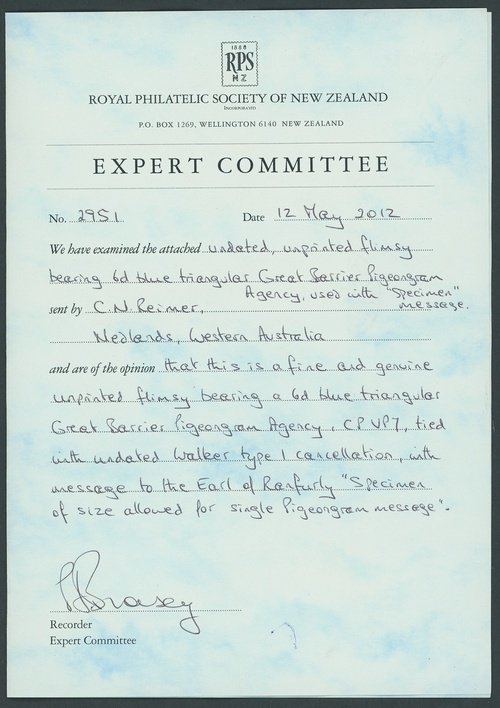 1888
RPS
NZ
ROYAL PHILATELIC SOCIETY OF NEW ZEALAND
INCORPORATED
P.O. BOX 1269, WELLINGTON 6140 NEW ZEALAND
EXPERT COMMITTEE
No. 2951 Date 12 May 2012
We have examined the attached undated, unprinted flimsy
bearing 6d blue triangular Great Barrier Pigeongram
Agency, used with "Specimen"
sent by C.N Reimer, message.
Nedlands, Western Australia
and are of the opinion that this is a fine and genuine
unprinted flimsy bearing a 6d blue triangular
Great Barrier Pigeongram Agency, CP VP7, tied
with undated Walker type 1 cancellation, with
message to the Earl of Ranfurly "Specimen
of size allowed for single Pigeongram message".
Recorder
Expert Committee